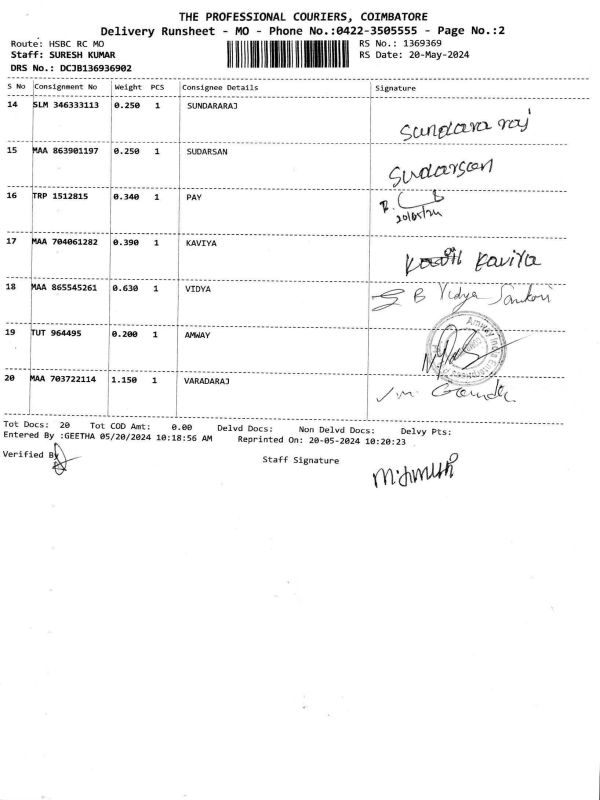 THE PROFESSIONAL COURIERS, COIMBATORE
Delivery Runsheet - MO - Phone No.:0422-3505555 - Page No.:2
Route: HSBC RC MO RS No.: 1369369
Staff: SURESH KUMAR RS Date: 20-May-2024
DRS No.: DCJB136936902
S No Consignment No Weight PCS Consignee Details Signature
14 SLM 346333113 0.250 1 SUNDARARAJ
Sundara raj
15 MAA 863901197 0.250 1 SUDARSAN
Sudarsan
16 TRP 1512815 0.340 1 PAY
17 MAA 704061282 0.390 1 KAVIYA
Kaviya
18 MAA 865545261 0.630 1 VIDYA
B Vidya
19 TUT 964495 0.200 1 AMWAY
Amway India
20 MAA 703722114 1.150 1 VARADARAJ
Tot Docs: 20 Tot COD Amt: 0.00 Delvd Docs: Non Delvd Docs: Delvy Pts:
Entered By :GEETHA 05/20/2024 10:18:56 AM Reprinted On: 20-05-2024 10:20:23
Verified By
Staff Signature